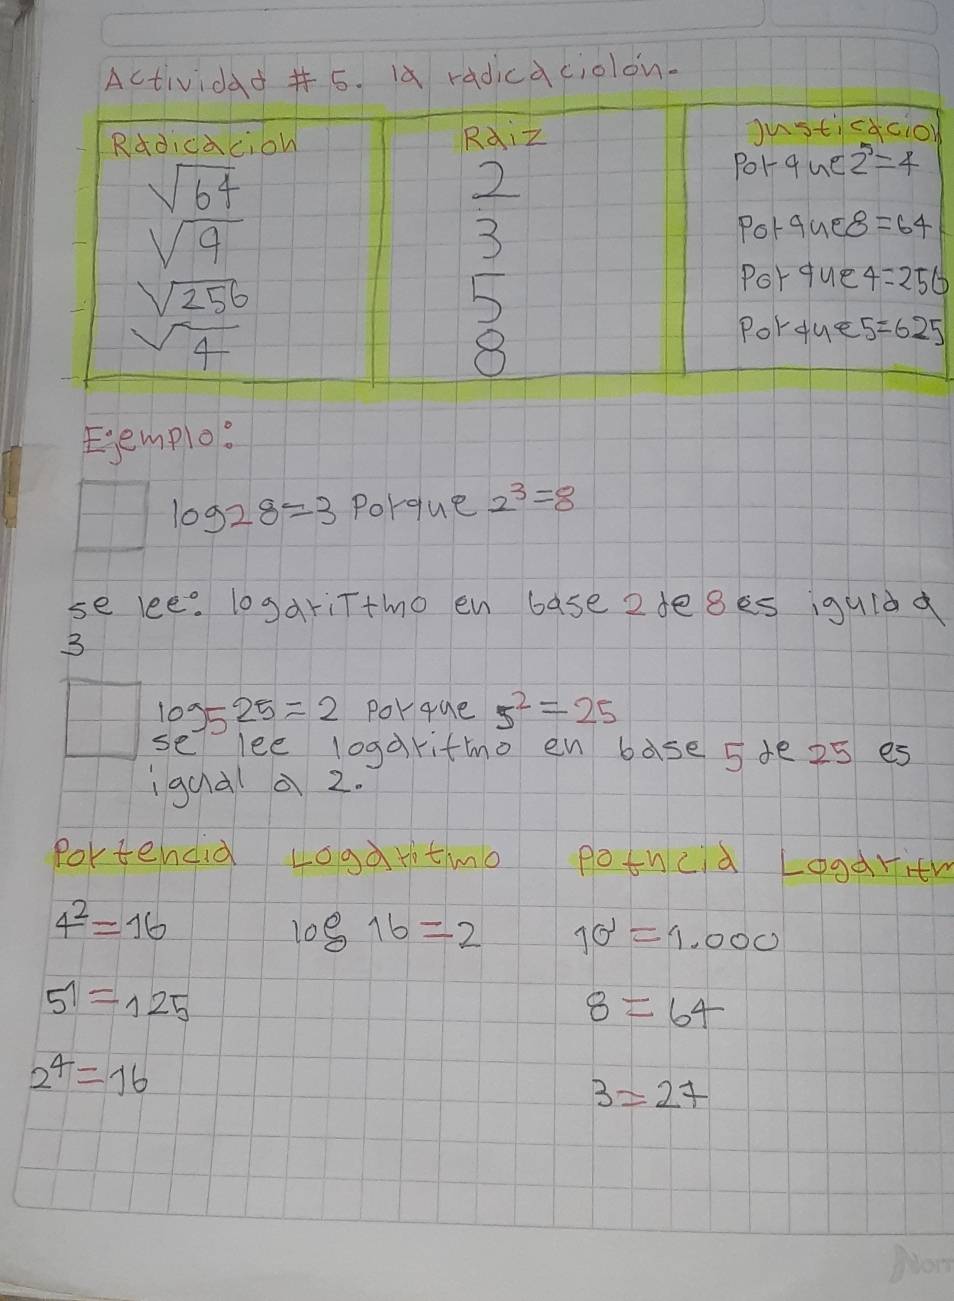 Actividad # 5. la radicaciolón.
Radicacion Raiz Justicacion
√64 2 Porque 2 = 4
√9 3 Porque 8 = 64
√256 5 Porque 4 = 256
√4 8 Porque 5 = 625
Ejemplo:
log 2 8 = 3 Porque 2³ = 8
se lee: logaritmo en base 2 de 8 es iguld a
3
log 5 25 = 2 Porque 5² = 25
se lee logaritmo en base 5 de 25 es
igual a 2.
Portencia Logaritmo Potncia Logaritm
4² = 16 log 16 = 2 = 1.000
5¹ = 125 8 = 64
2⁴ = 16 3 = 27